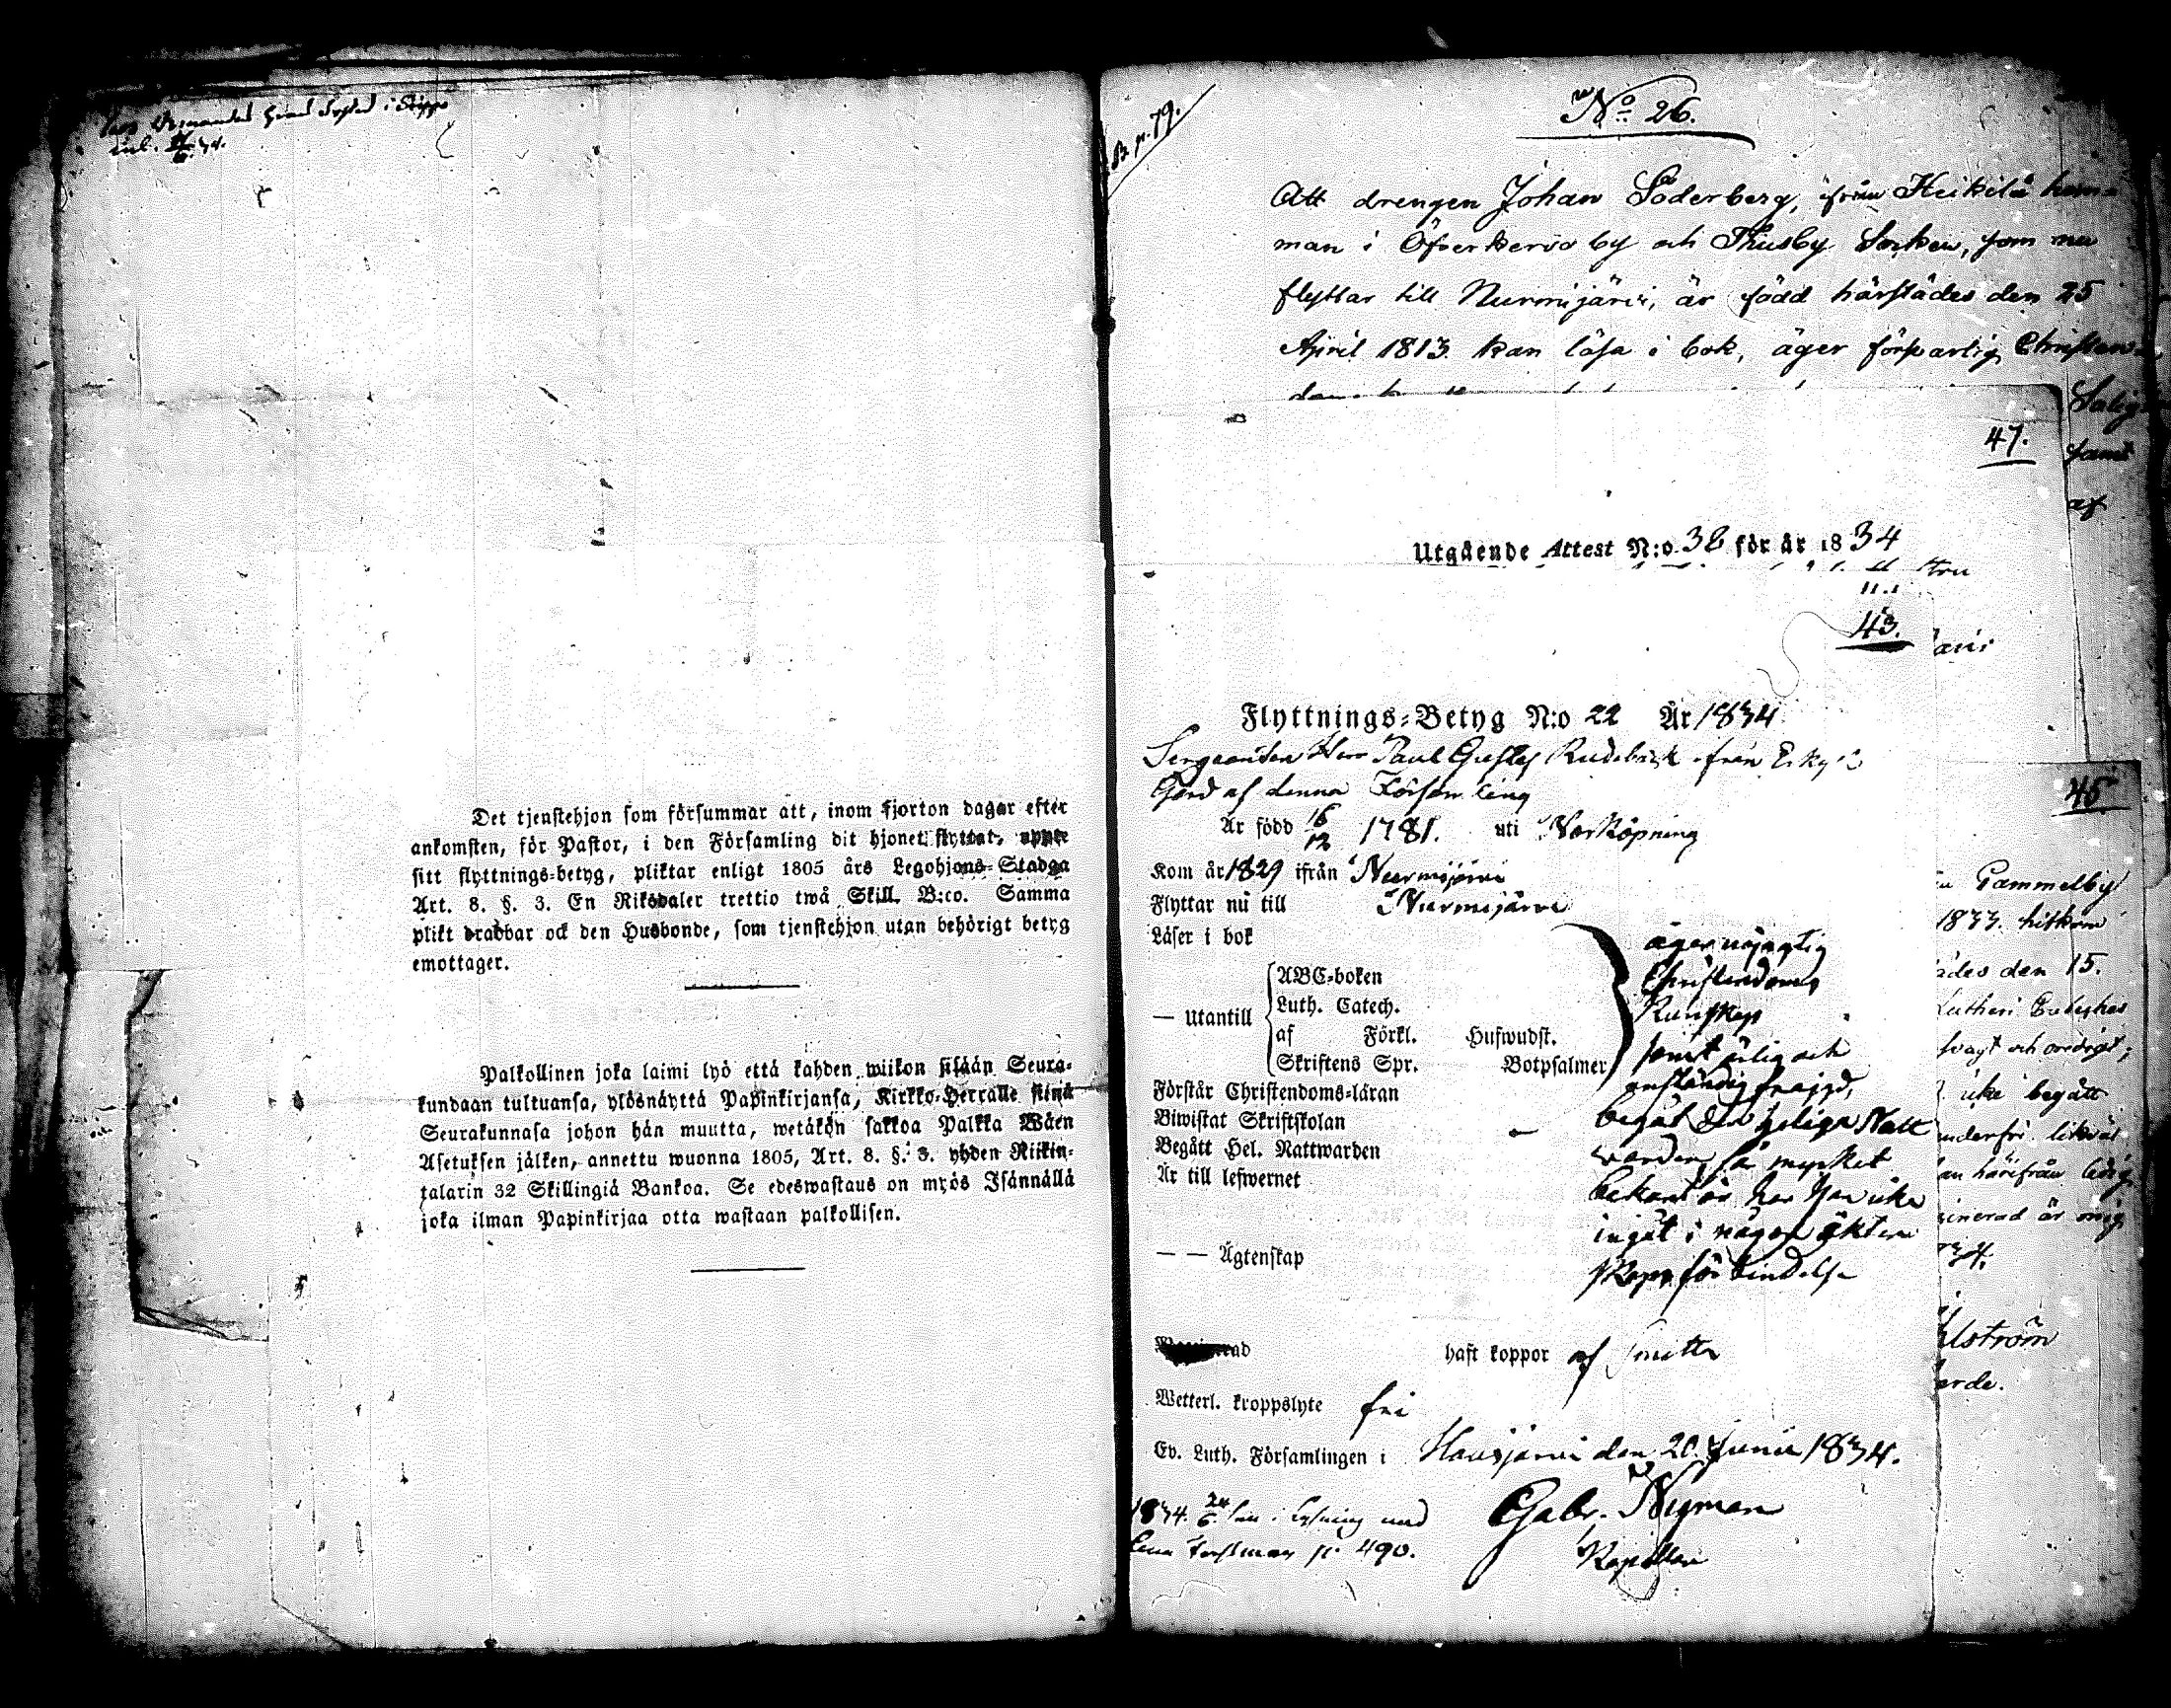 Det tjenstehjon som försummar att, inom fjorton dagar efter
ankomsten, för Pastor, i den Församling dit hjonet flyttat, uppte
sitt flyttnings-betyg, pliktar enligt 1805 års Legohjons-Stadga
Art. 8. §. 3. En Riksdaler trettio twå Skill. B:co. Samma
plikt drabbar ock den Husbonde, som tjenstehjon utan behörigt betyg
emottager.
Palkollinen joka laimi lyö että kahden wiikon sisään Seura-
kundaan tultuansa, ylösnäyttä Papinkirjansa, Kirkko-Herralle siinä
Seurakunnasa johon hän muutta, wetäkön sakkoa Palkka Wäen
Asetuksen jälken, annettu wuonna 1805, Art. 8. §. 3. yhden Riikin-
talarin 32 Skillingiä Bankoa. Se edeswastaus on myös Isännällä
joka ilman Papinkirjaa otta wastaan palkollisen.
p. 79.
No 26.
Att drengen Johan Söderberg, ifrån Heikilä hem
man i Öfverkervo by och Thusby Socken, som nu
flyttar till Nurmijärvi, är född härstädes den 25
April 1813. kan läsa i bok, äger försvarlig Christen
Salig
47.
samt
af
Utgående Attest N:o 38 för år 1834
43.
ärvi
Flyttnings-Betyg N:o 22 År 1834
Sergeanten Herr Paul Gustaf Rudebäck ifrån Erkylä
Gård af denna Församling
Är född 16/12 1781. uti Norköpning
45
Kom år 1829 ifrån Nurmijärvi
Flyttar nu till Nurmijärvi
Läser i bok
— Utantill
ABC-boken
Luth. Catech.
af Förkl. Hufwudst.
Skriftens Spr. Botpsalmer
Förstår Christendoms-läran
Biwistat Skriftskolan —
Begått Hel. Nattwarden
Är till lefwernet
— — Ägtenskap
äger nöjagtig
Christendoms
Kunskap
samt ärlig och
anständig frejgd,
begåt den heliga Natt
varden, så mycket
bekant är har han icke
ingåt i någon äkten
skaps förbindelse
haft koppor af Smitta
Wetterl. kroppslyte fri
Ev. Luth. Församlingen i Hausjärvi den 20 Junii 1834.
Gabr. Nyman
Kapellan
1834. 24/6 i Lysning med
Lena Forsman p. 490.
Gammelby
1833. hitkom
ädes den 15.
Lutheri Cateches
svagt och oredigt;
icke begått
underfri likväl
an härifrån ledig
cinerad är mig
34.
lström